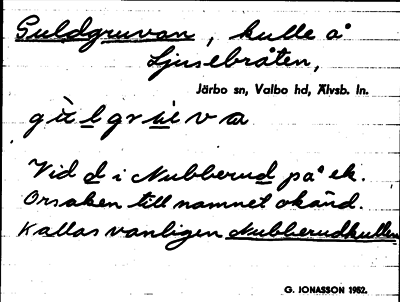 Guldgruvan, kulle å
Ljusebråten,
Järbo sn, Valbo hd, Älvsb. ln.
Vid d i Nubberud på ek.
Orsaken till namnet okänd.
Kallas vanligen Nubberudkullen
G. JONASSON 1982.